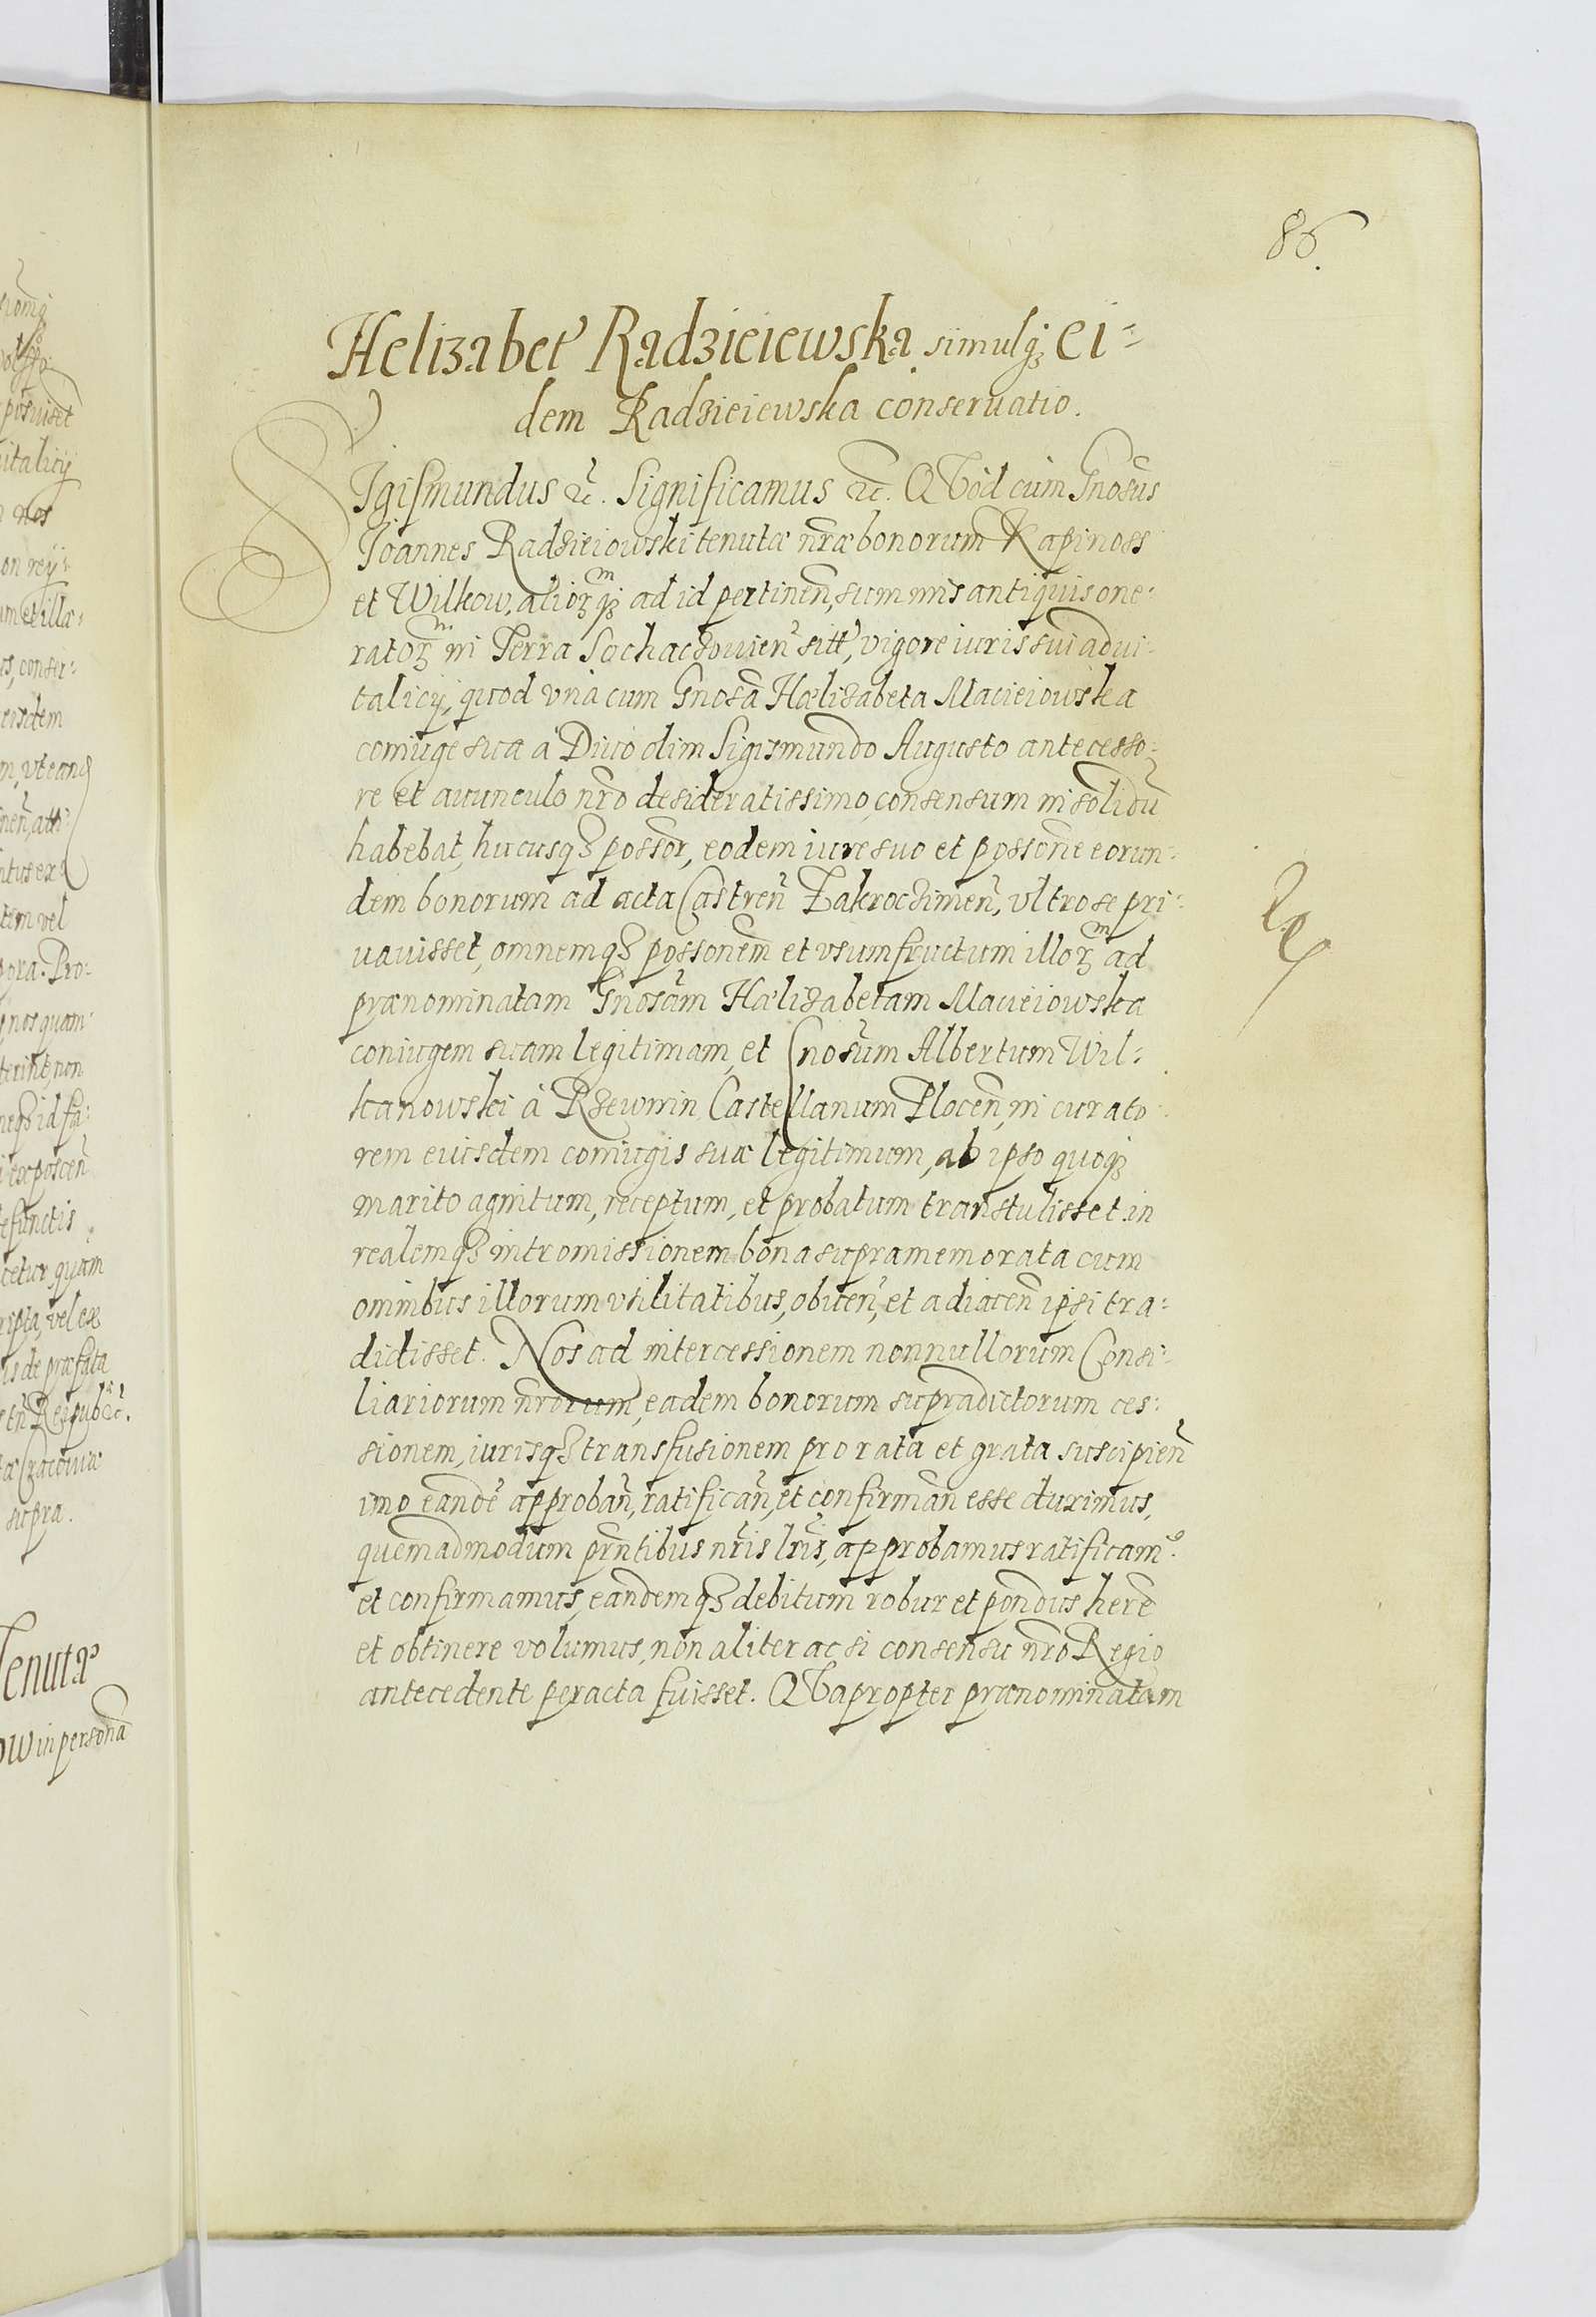 86.
Helizabet Radzieiewska simulq₃ ei=
dem Radzieiewska conseruatio.
Sigismundus etc. Significamus etc. Quod cum Gnosus
Joannes Radzieiowski tenutæ nræ bonorum Kapinoss
et Wilkow, alioꝝmq₃ ad id pertinen, summis antiquis one=
ratoꝝm in Terra Sochaczouien sitt, vigore iuris sui adui=
talicij, quod vna cum Gnosa Hælizabeta Macieiowska
coniuge sua a Diuo olim Sigismundo Augusto antecesso=
re et auunculo nro desideratissimo, consensum in solidu
habebat, hucusq₃ possor, eodem iure suo et possone eorun=
dem bonorum ad acta Castren Zakroczimen, vltro se pri=
uauisset, omnemq₃ possonem et vsumfructum illoꝝm ad
prænominatam Gnosam Hælizabetam Macieiowska
coniugem suam legitimam, et Gnosum Albertum Wil=
kanowski à Rzewnin Castellanum Plocen, in curato=
rem eiusdem coniugis suæ legitimum, ab ipso quoq₃
marito agnitum, receptum, et probatum transtulisset in
realemq₃ intromissionem bona supramemorata cum
omnibus illorum vtilitatibus, obuen, et adiacen ipsi tra=
didisset. Nos ad intercessionem nonnullorum Consi=
liariorum nrorum, eadem bonorum supradictorum ces=
sionem, iurisq₃ transfusionem pro rata et grata suscipien
imo eande approban, ratifican, et confirman esse duximus,
quemadmodum prntibus nris lris, approbamus ratificam⁹
et confirmamus, eandemq₃ debitum robur et pondus here
et obtinere volumus, non aliter ac si consensu nro Regio
antecedente peracta fuisset. Quapropter prænominatam